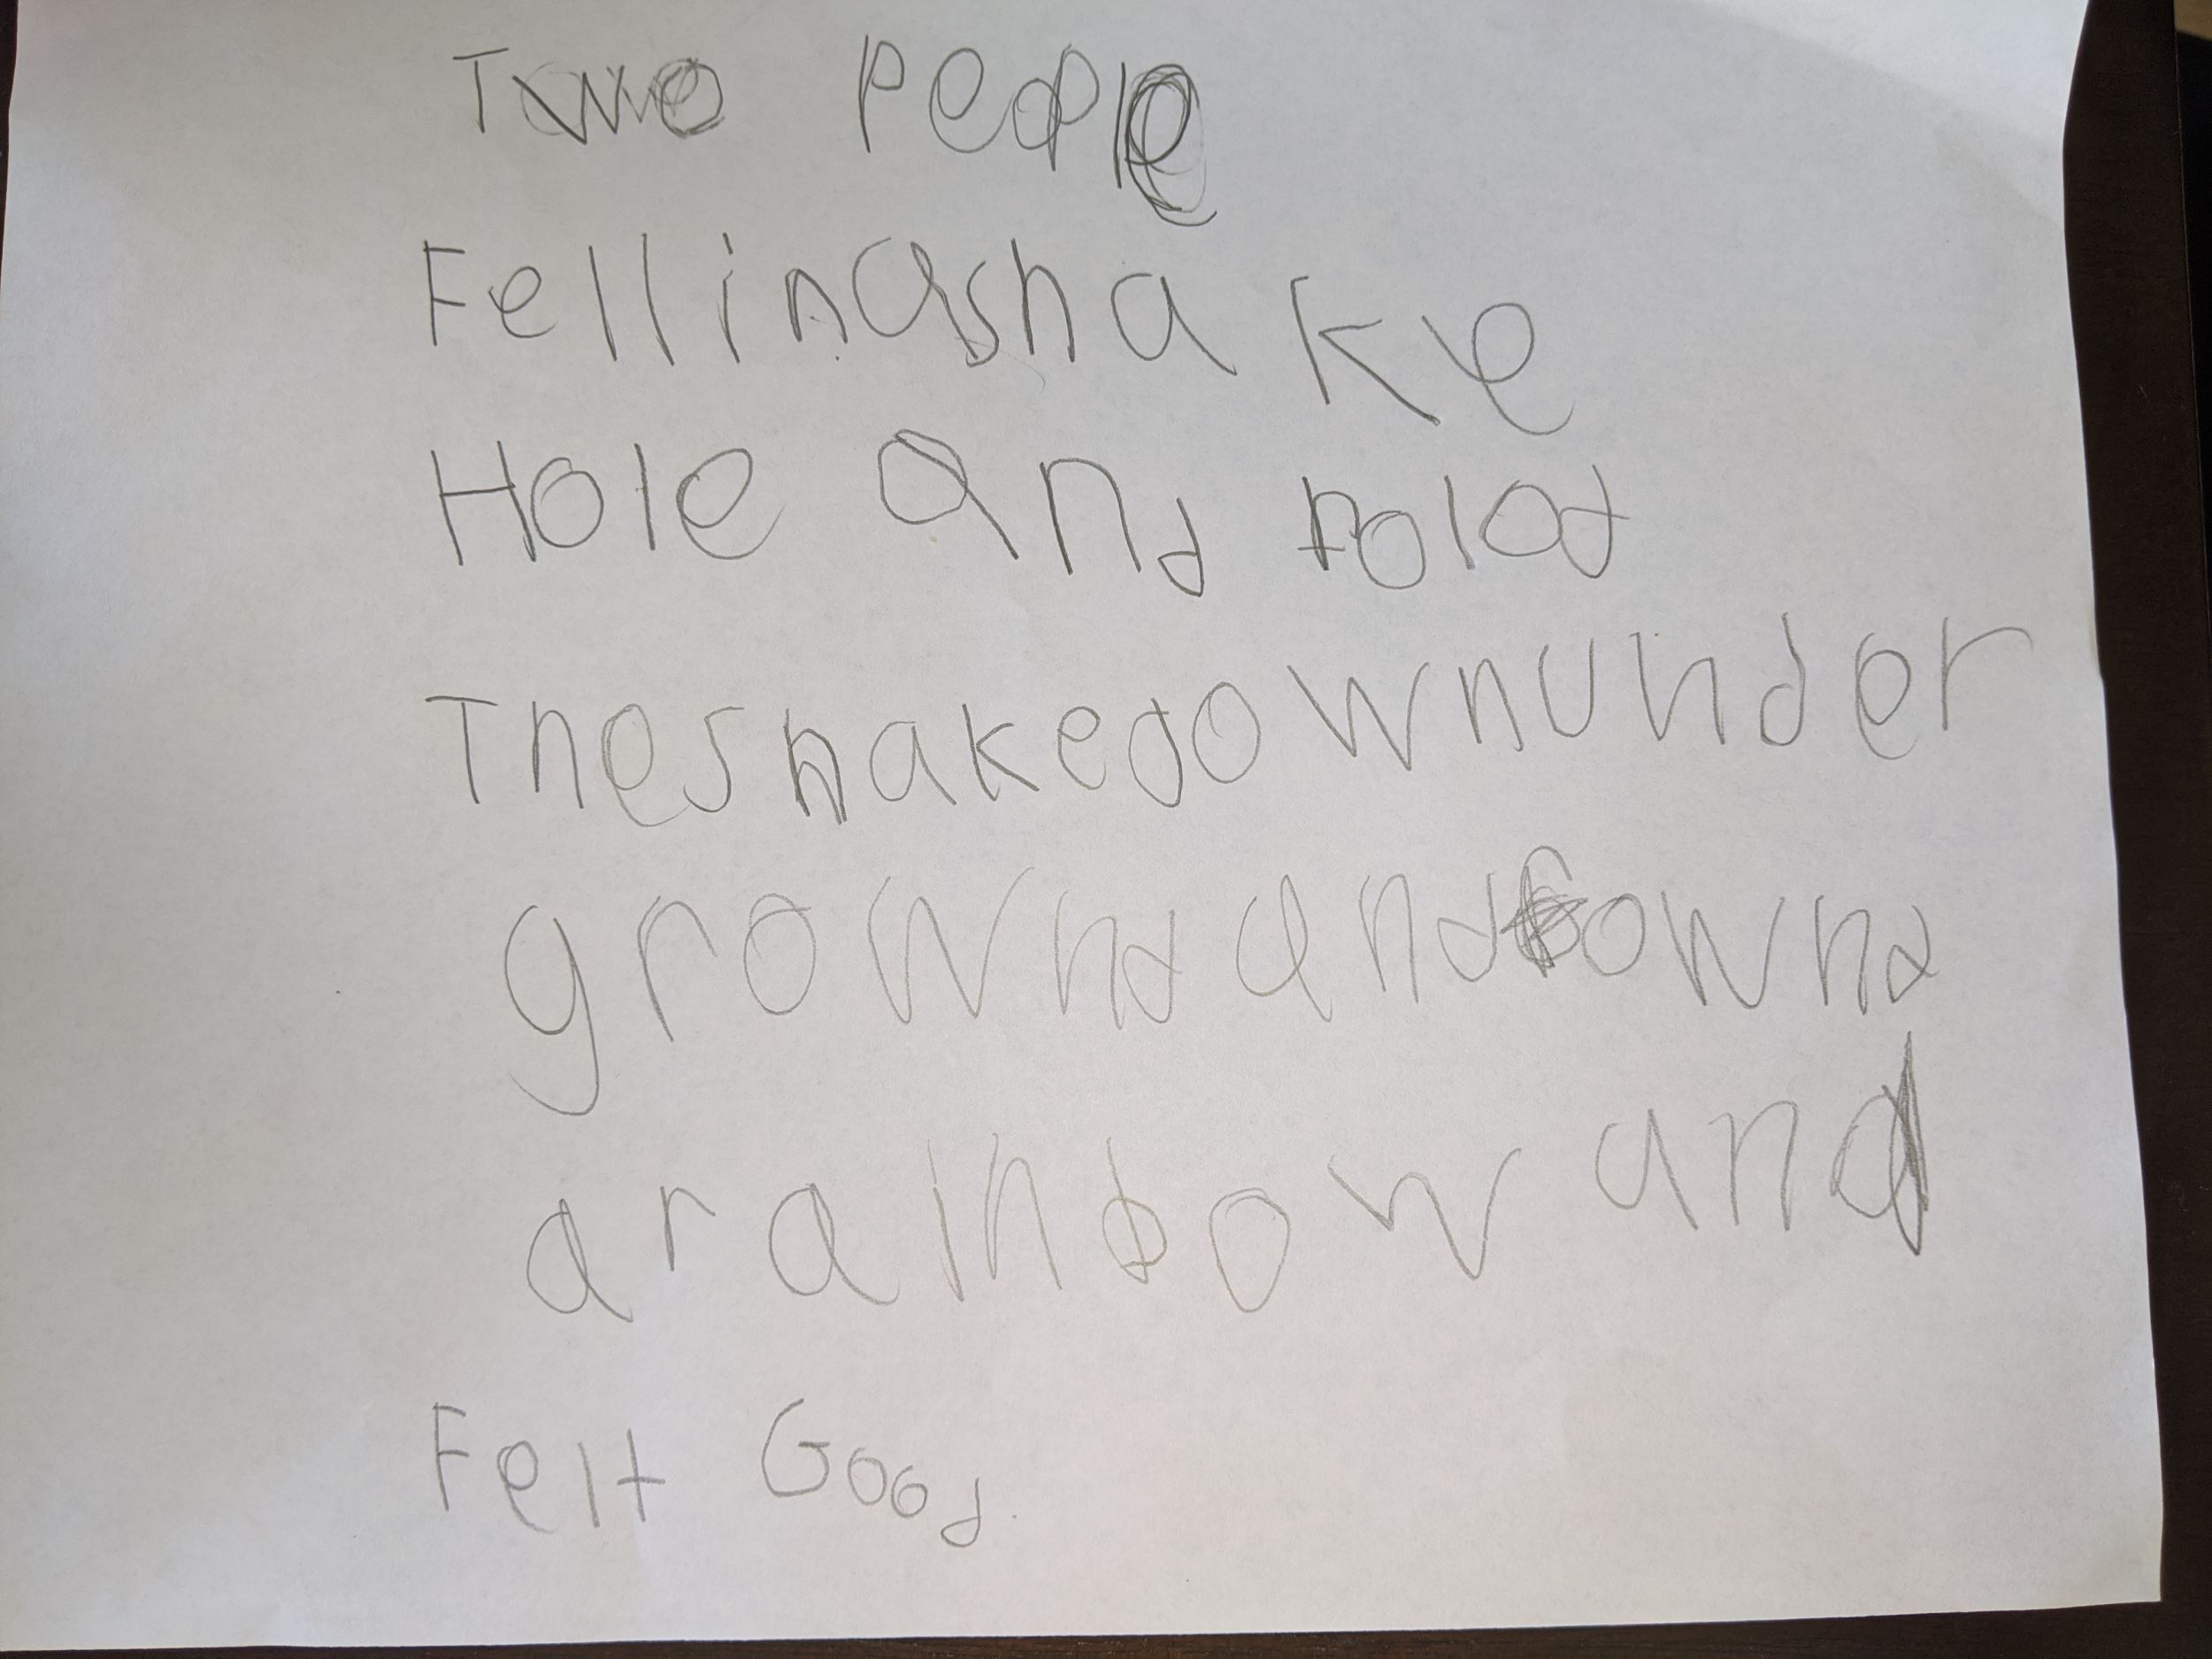 Two People
Fellinasnake
Hole and rolod
Thesnakedownunder
growndandfownd
arainbow and
Felt Good.